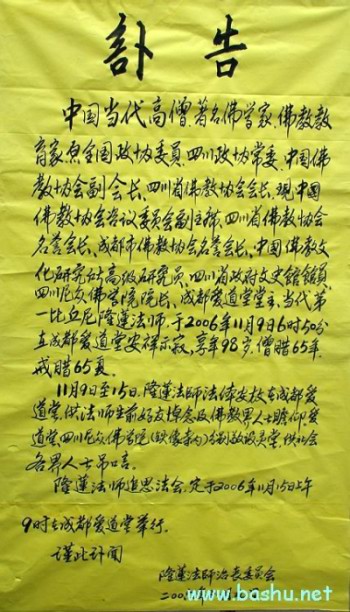 訃告
中国当代高僧、著名佛学家、佛教教
育家、原全国政协委员、四川政协常委、中国佛
教协会副会长、四川省佛教协会会长、现中国
佛教协会咨议委员会副主席、四川省佛教协会
名誉会长、成都市佛教协会名誉会长、中国佛教文
化研究所高级研究员、四川省政府文史館館員、
四川尼众佛学院院长、成都爱道堂堂主、当代第
一比丘尼隆莲法师，于2006年11月9日6时50分
在成都爱道堂安祥示寂，享年98岁，僧腊65年，
戒腊65夏。
11月9日至15日，隆莲法师法体安放在成都爱
道堂，供法师生前好友悼念及佛教界人士瞻仰，爱
道堂、四川尼众佛学院分别设灵堂，供社会
各界人士吊唁。
隆莲法师追思法会，定于2006年11月15日上午
9时在成都爱道堂举行。
谨此讣闻
隆莲法师治丧委员会
www.bashu.net